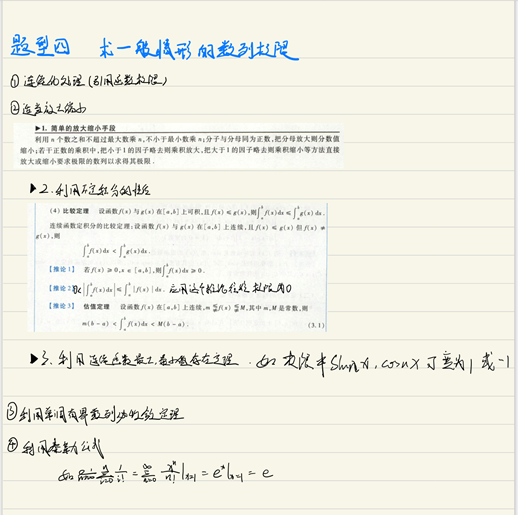 题型四 求一般情形的数列极限
① 连续化处理(引用函数极限)
② 适当放大缩小
▶1. 简单的放大缩小手段
利用 n 个数之和不超过最大数乘 n,不小于最小数乘 n;分子与分母同为正数,把分母放大则分数值
缩小;若干正数的乘积中,把小于1的因子略去则乘积放大,把大于1的因子略去则乘积缩小等方法直接
放大或缩小要求极限的数列以求得其极限.
▶2. 利用定积分的性质
(4) 比较定理 设函数 f(x) 与 g(x) 在 [a,b] 上可积,且 f(x) ≤ g(x),则 ∫_a^b f(x)dx ≤ ∫_a^b g(x)dx.
连续函数定积分的比较定理:设函数 f(x) 与 g(x) 在 [a,b] 上连续,且 f(x) ≤ g(x) 但 f(x) ≢
g(x),则
∫_a^b f(x)dx < ∫_a^b g(x)dx.
【推论1】 若 f(x) ≥ 0, x ∈ [a,b],则 ∫_a^b f(x)dx ≥ 0.
【推论2】 |∫_a^b f(x)dx| ≤ ∫_a^b |f(x)|dx. 极限为0
【推论3】 估值定理 设函数 f(x) 在 [a,b] 上连续,m ≤ f(x) ≤ M,其中 m,M 是常数,则
m(b-a) < ∫_a^b f(x)dx < M(b-a). (3.1)
▶3. 利用连续函数最大,最小值存在定理. 如 sin x, cos x 可变为 1 或 -1
③ 利用单调有界数列收敛定理
④ 利用泰勒公式
如 lim_{n→∞} Σ_{i=0}^n 1/i! = Σ_{n=0}^∞ x^n/n! |_{x=1} = e^x|_{x=1} = e